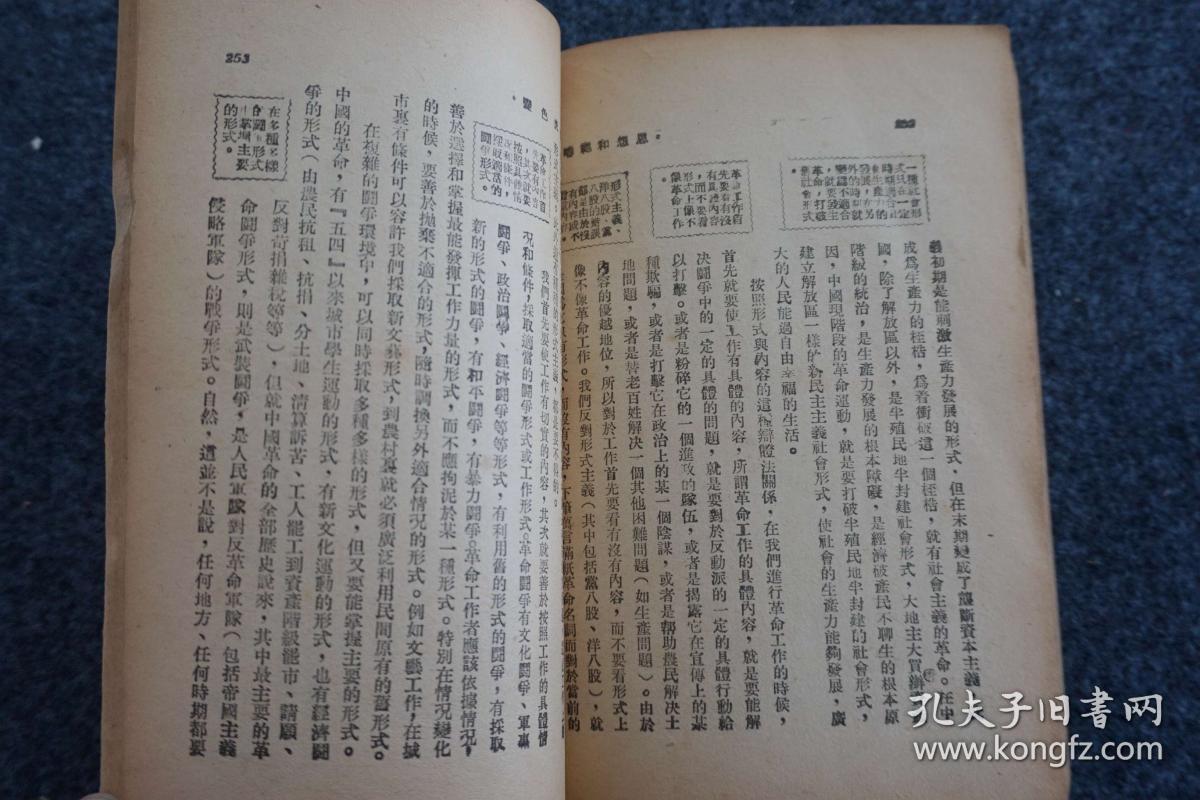 252
思想和範疇
一種社會形
式只在一定
時期適合社
會生產力的
發展，在另
外的時期就
變爲不適合
，就要發生
革命，打破
舊社會形式
義初期是能刺激生產力發展的形式，但在末期變成了壟斷資本主義
成爲生產力的桎梏，爲着衝破這一個桎梏，就有社會主義的革命。在中
國，除了解放區以外，是半殖民地半封建社會形式，大地主大買辦
階級的統治，是生產力發展的根本障礙，是經濟破產民不聊生的根本原
因，中國現階段的革命運動，就是要打破半殖民地半封建的社會形式，
建立解放區一樣的新民主主義社會形式，使社會的生產力能夠發展，廣
大的人民能過自由幸福的生活。
革命工作首
先要看有沒
有具體內容
，而不要看
形式上像不
像革命工作
按照形式與內容的這種辯證法關係，在我們進行革命工作的時候，
首先就要使工作有具體的內容，所謂革命工作的具體內容，就是要能解
決鬪爭中的一定的具體的問題，就是要對於反動派的一定的具體行動給
以打擊。或者是粉碎它的一個進攻的隊伍，或者是揭露它在宣傳上的某
種欺騙，或者是打擊它在政治上的某一個陰謀，或者是幫助農民解決土
地問題，或者是替老百姓解決一個其他困難問題（如生產問題）。由於
形式主義、
洋八股、黨
八股的錯誤
內容的優越地位，所以對於工作首先要看有沒有內容，而不要看形式上
像不像革命工作。我們反對形式主義（其中包括黨八股、洋八股），就
有形式，而沒有內容，下筆萬言滿紙革命名詞而對於當前的
253
我們首先要使工作有切實的內容，其次就要善於按照工作的具體情
況和條件，採取適當的鬪爭形式或工作形式。革命鬪爭有文化鬪爭、軍事
鬪爭、政治鬪爭、經濟鬪爭等等形式，有利用舊的形式的鬪爭，有採取
新的形式的鬪爭，有和平鬪爭，有暴力鬪爭。革命工作者應該依據情況，
善於選擇和掌握最能發揮工作力量的形式，而不應拘泥於某一種形式。特別在情況變化
的時候，要善於拋棄不適合的形式，隨時調換另外適合情況的形式。例如文藝工作，在城
市裏有條件可以容許我們採取新文藝形式，到農村裏就必須廣泛利用民間原有的舊形式。
在多種多樣
的鬪爭形式
中掌握主要
的形式。
在複雜的鬪爭環境中，可以同時採取多種多樣的形式，但又要能掌握主要的形式。
中國的革命，有『五四』以來城市學生運動的形式，有新文化運動的形式，也有經濟鬪
爭的形式（由農民抗租、抗捐、分土地、清算訴苦、工人罷工到資產階級罷市、請願、
反對苛捐雜稅等等），但就中國革命的全部歷史說來，其中最主要的革
命鬪爭形式，則是武裝鬪爭，是人民軍隊對反革命軍隊（包括帝國主義
侵略軍隊）的戰爭形式。自然，這並不是說，任何地方、任何時期都要
孔夫子旧书网
www.kongfz.com